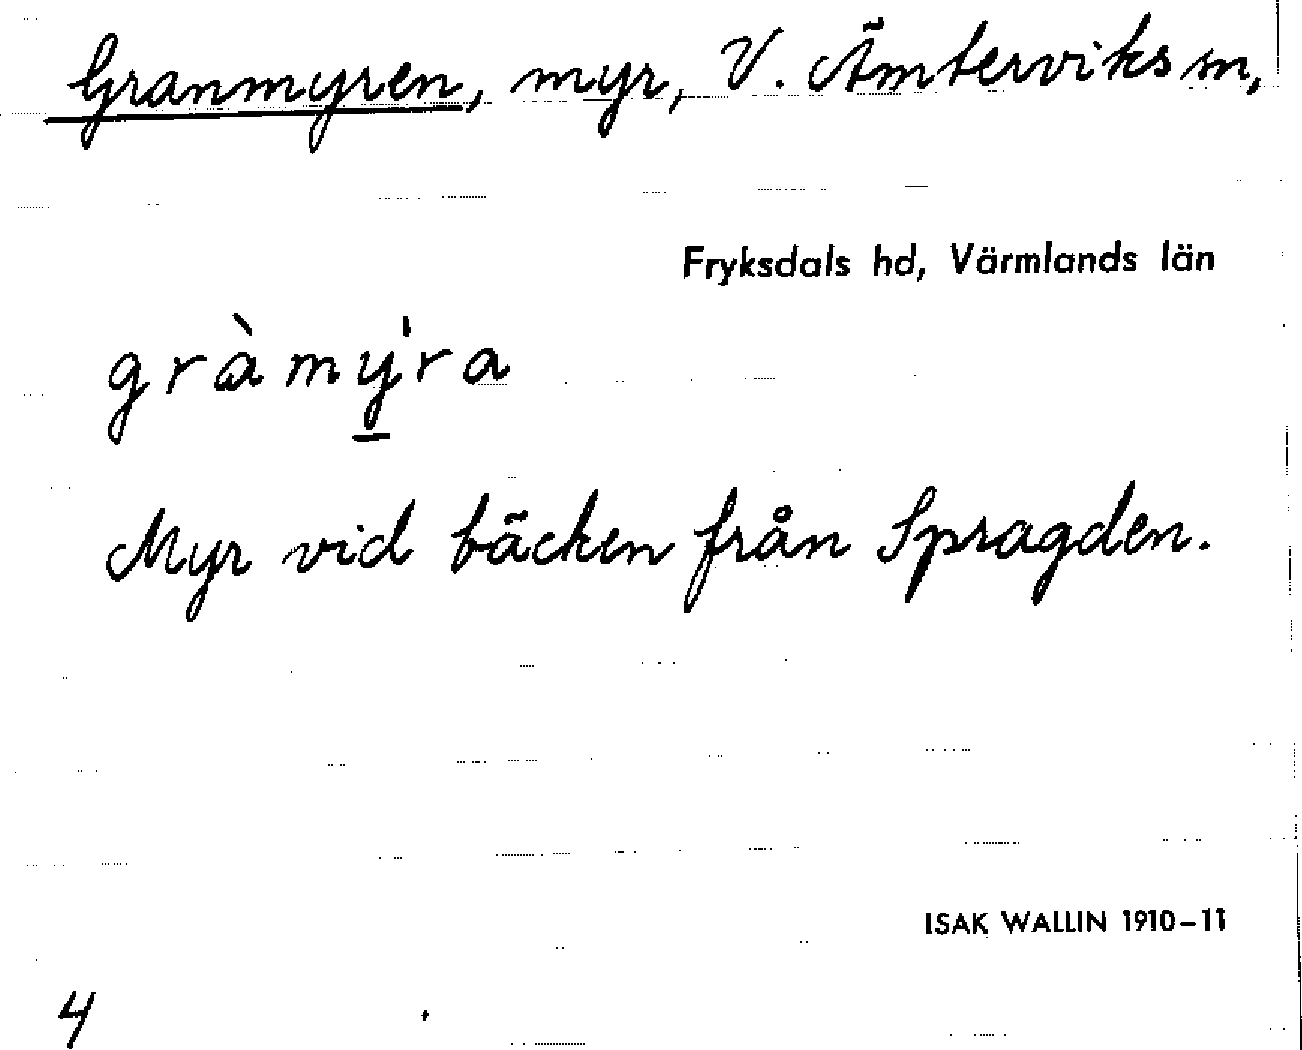 Granmyren, myr, V. Ämterviks sn,
Fryksdals hd, Värmlands län
gràmy̱̍ra
Myr vid bäcken från Spragden.
ISAK WALLIN 1910–11
4